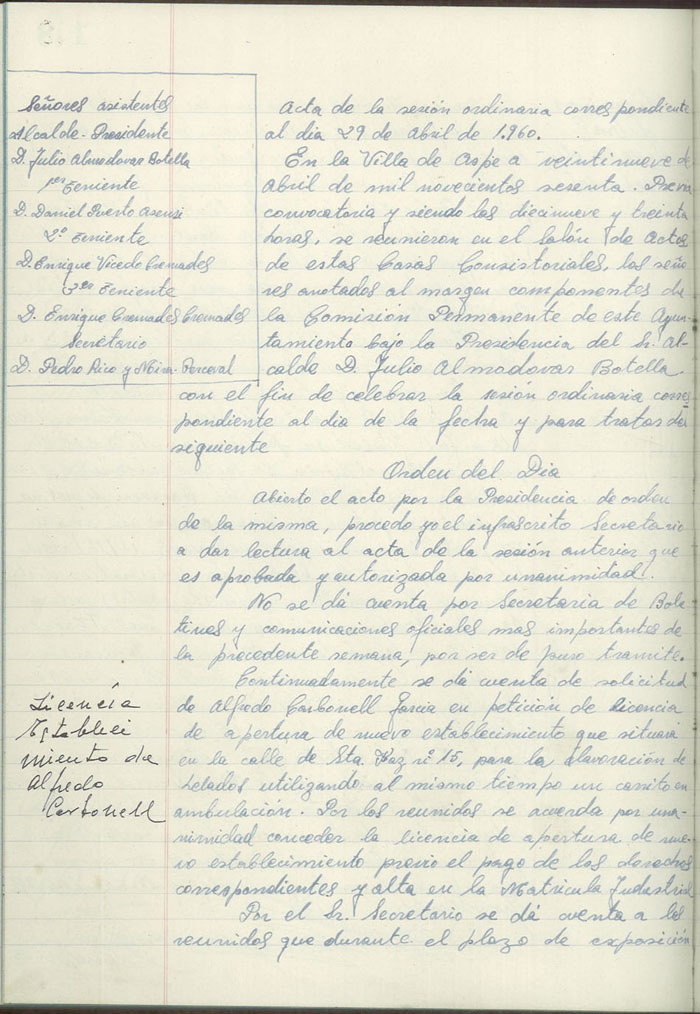 Señores asistentes
Alcalde-Presidente
D. Julio Almodovar Botella
1er Teniente
D. Daniel Puerto Asensi
2º Teniente
D. Enrique Vicedo Cremades
3er Teniente
D. Enrique Cremades Cremades
Secretario
D. Pedro Rico y Mira-Perceval
Acta de la sesión ordinaria correspondiente
al dia 29 de Abril de 1.960.
En la Villa de Aspe a veintinueve de
Abril de mil novecientos sesenta. Previa
convocatoria y siendo las diecinueve y treinta
horas, se reunieron en el Salón de Actos
de estas Casas Consistoriales, los seño-
res anotados al margen componentes de
la Comisión Permanente de este Ayun-
tamiento bajo la Presidencia del Sr. Al-
calde D. Julio Almodovar Botella
con el fin de celebrar la sesión ordinaria corres-
pondiente al dia de la fecha y para tratar del
siguiente
Orden del Dia
Abierto el acto por la Presidencia de orden
de la misma, procedo yo el infrascrito Secretario
a dar lectura al acta de la sesión anterior que
es aprobada y autorizada por unanimidad.
No se dá cuenta por Secretaria de Bole-
tines y comunicaciones oficiales mas importantes de
la precedente semana, por ser de puro tramite.
Continuadamente se dá cuenta de solicitud
de Alfredo Carbonell Garcia en petición de licencia
de apertura de nuevo establecimiento que situará
en la calle de Sta. Faz nº 15, para la elavoración de
helados utilizando al mismo tiempo un carrito en
ambulación. Por los reunidos se acuerda por una-
nimidad conceder la licencia de apertura de nue-
vo establecimiento previo el pago de los derechos
correspondientes y alta en la Matricula Industrial
Por el Sr. Secretario se dá cuenta a los
reunidos que durante el plazo de exposición
Licencia
Establei
miento de
Alfredo
Carbonell